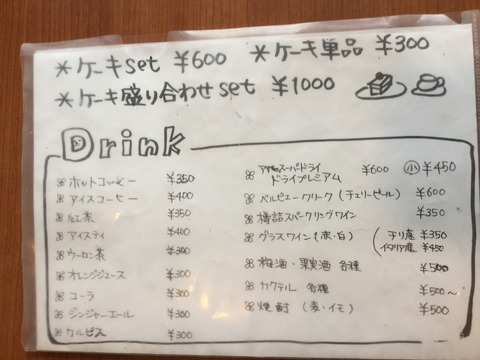 *ケーキset ¥600 *ケーキ単品 ¥300
*ケーキ盛り合わせset ¥1000
Drink
ホットコーヒー ¥350
アイスコーヒー ¥400
紅茶 ¥350
アイスティ ¥400
ウーロン茶 ¥300
オレンジジュース ¥300
コーラ ¥300
ジンジャーエール ¥300
カルピス ¥300
アサヒスーパードライ
ドライプレミアム ¥600 小 ¥450
ベルビュークリーク(チェリービール) ¥600
樽詰スパークリングワイン ¥350
グラスワイン(赤・白) (チリ産 ¥350
イタリア産 ¥450
梅酒・果実酒 各種 ¥500
カクテル 各種 ¥500~
焼酎 (麦・イモ) ¥500